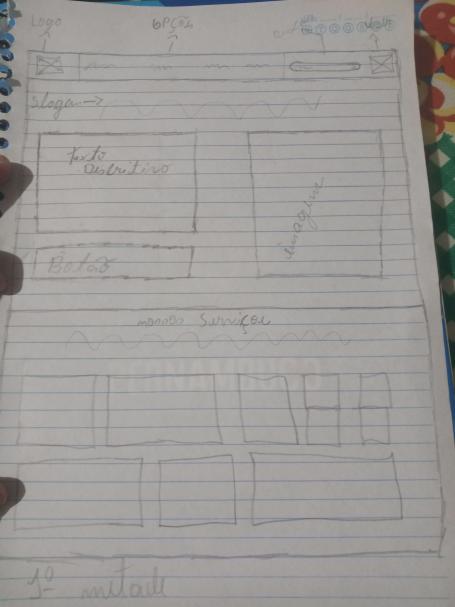 Logo opções
Slogan
texto
Descritivo
imagem
Botão
nossos Serviços
1º metade